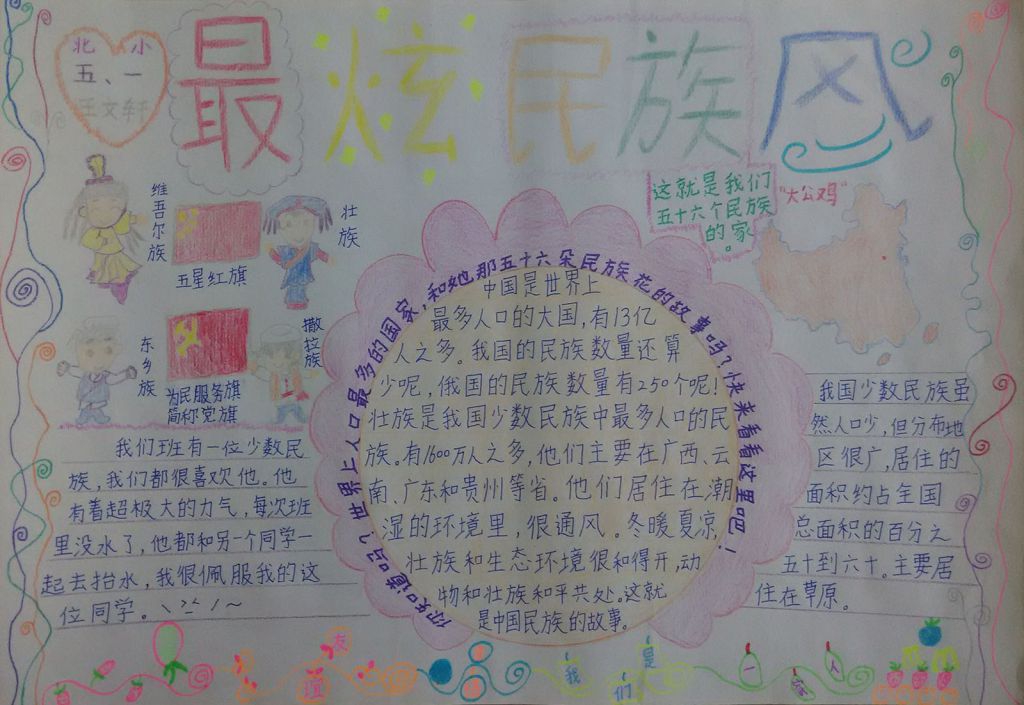 北小
五、一
王文轩
最炫民族风
维吾尔族
五星红旗
壮族
东乡族
为民服务旗
简称党旗
撒拉族
这就是我们
五十六个民族
的家。
"大公鸡"
你知道吗？世界上人口最多的国家，和她那五十六朵民族花的故事吗？快来看看这里吧！
中国是世界上
最多人口的大国，有13亿
人之多。我国的民族数量还算
少呢，俄国的民族数量有250个呢！
壮族是我国少数民族中最多人口的民
族。有1600万人之多，他们主要在广西、云
南、广东和贵州等省。他们居住在潮
湿的环境里，很通风。冬暖夏凉，
壮族和生态环境很和得开，动
物和壮族和平共处。这就
是中国民族的故事。
我们班有一位少数民
族，我们都很喜欢他。他
有着超极大的力气，每次班
里没水了，他都和另个同学一
起去抬水，我很佩服我的这
位同学。
我国少数民族虽
然人口少，但分布地
区很广，居住的
面积约占全国
总面积的百分之
五十到六十。主要居
住在草原。
友谊
我们是一家人